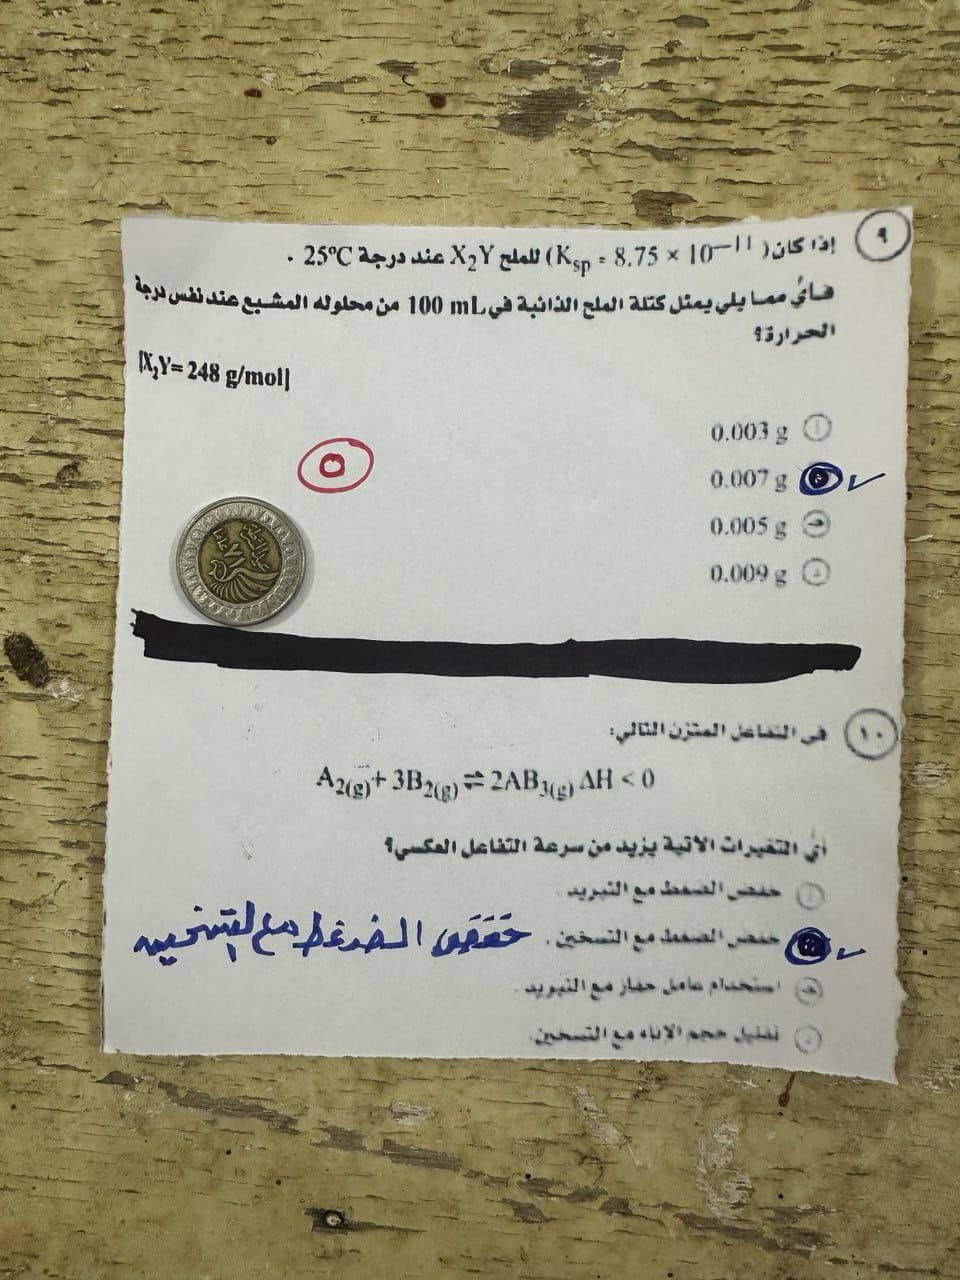 ٩ إذا كان (Ksp = 8.75 × 10⁻¹¹) للملح X₂Y عند درجة 25ºC .
فأي مما يلي يمثل كتلة الملح الذائبة في 100 mL من محلوله المشبع عند نفس درجة
الحرارة؟
[X₂Y= 248 g/mol]
أ 0.003 g
0.007 g ✓
ج 0.005 g
د 0.009 g
١٠ في التفاعل المتزن التالي:
A₂(g)+ 3B₂(g) ⇌ 2AB₃(g) ΔH < 0
أي التغيرات الآتية يزيد من سرعة التفاعل العكسي؟
أ خفض الضغط مع التبريد.
خفض الضغط مع التسخين. ✓
خفض الضغط مع التسخين
ج استخدام عامل حفاز مع التبريد.
د تقليل حجم الإناء مع التسخين.